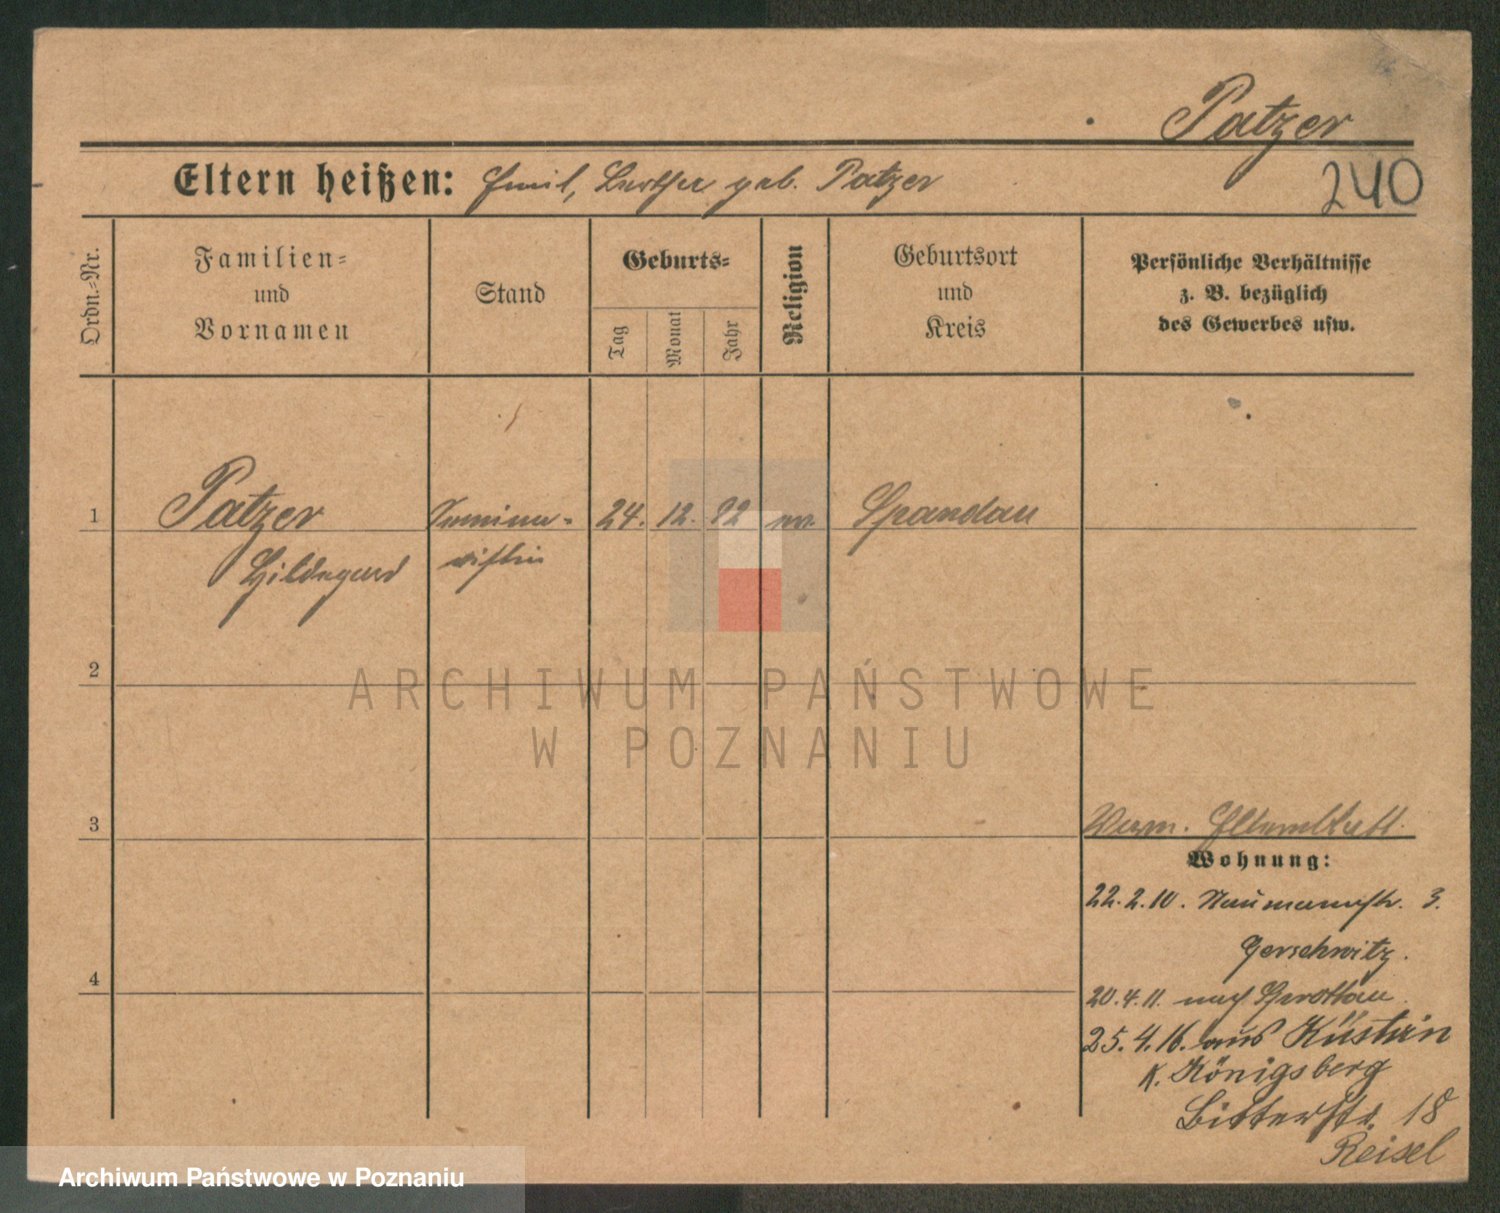 Patzer
Eltern heißen: Emil, Berta geb. Patzer
240
Ordn.-Nr.
Familien-
und
Vornamen
Stand
Geburts-
Tag
Monat
Jahr
Religion
Geburtsort
und
Kreis
Persönliche Verhältnisse
z. B. bezüglich
des Gewerbes usw.
1
Patzer
Hildegard
Semina-
ristin
24. 12. 92 ev. Spandau
2
ARCHIWUM PAŃSTWOWE
W POZNANIU
3
Wohnung:
22.2.10. Naumannstr. 3.
Gerschwitz.
4
20.4.11. nach
25.4.16. aus Küstrin
K. Königsberg
Bitterstr. 18
Reisel
Archiwum Państwowe w Poznaniu